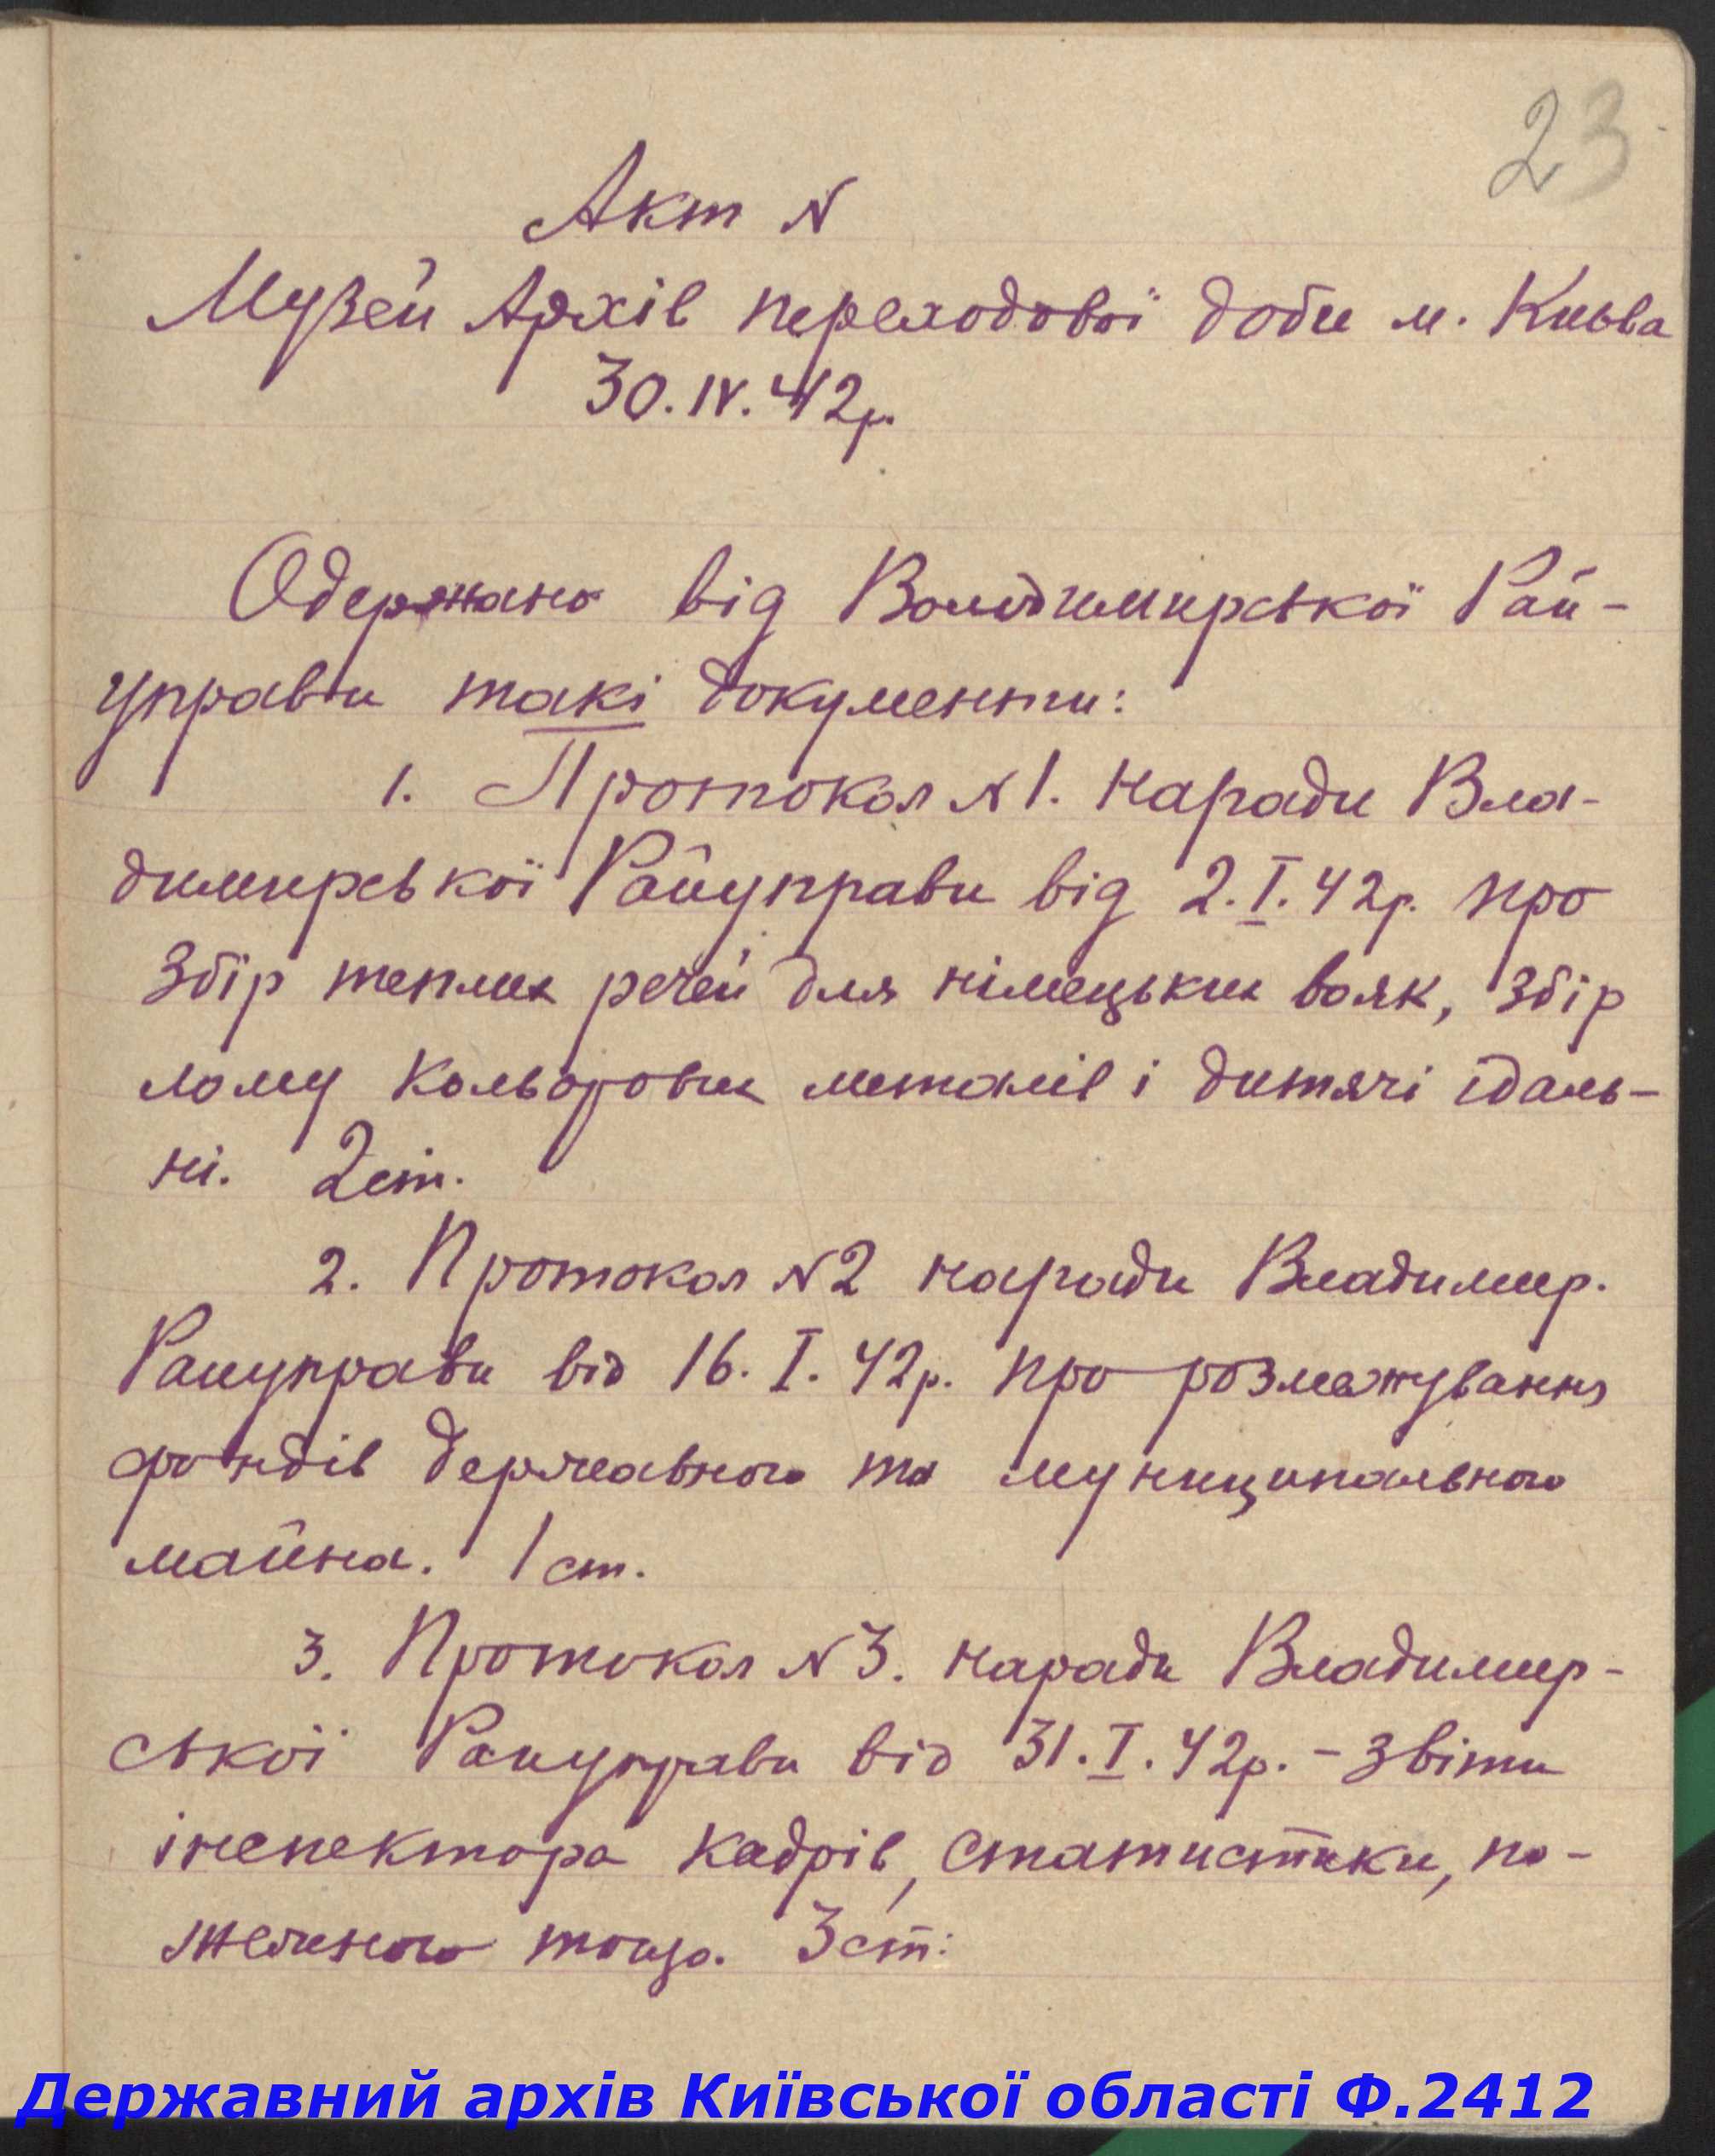 23
Акт N
Музей Архів переходової доби м. Києва
30.IV.42р.
Одержано від Володимирської Рай-
управи такі документи:
1. Протокол N1. наради Вла-
димирської Райуправи від 2.I.42р. про
збір теплих речей для німецьких вояк, збір
лому кольорових металів і дитячі їдаль-
ні. 2 ст.
2. Протокол N2 наради Владимир.
Райуправи від 16.I.42р. про розмежування
фондів державного та муниципального
майна. 1 ст.
3. Протокол N3. наради Владимир-
ської Райуправи від 31.I.42р. - звіти
інспектора кадрів, статистики, по-
жежного тощо. 3 ст.
Державний архів Київської області Ф.2412